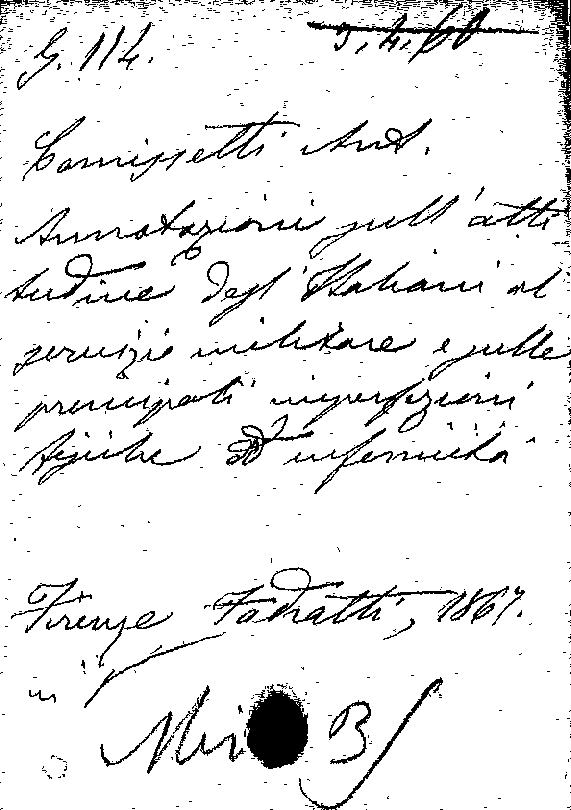 G. 114.
3.4.60
Comissetti Ant.
Annotazioni sull'atti
tudine degl'Italiani al
servizio militare e sulle
principali imperfezioni
fisiche ed infermità
Firenze Fodratti, 1867.
in
Misc B